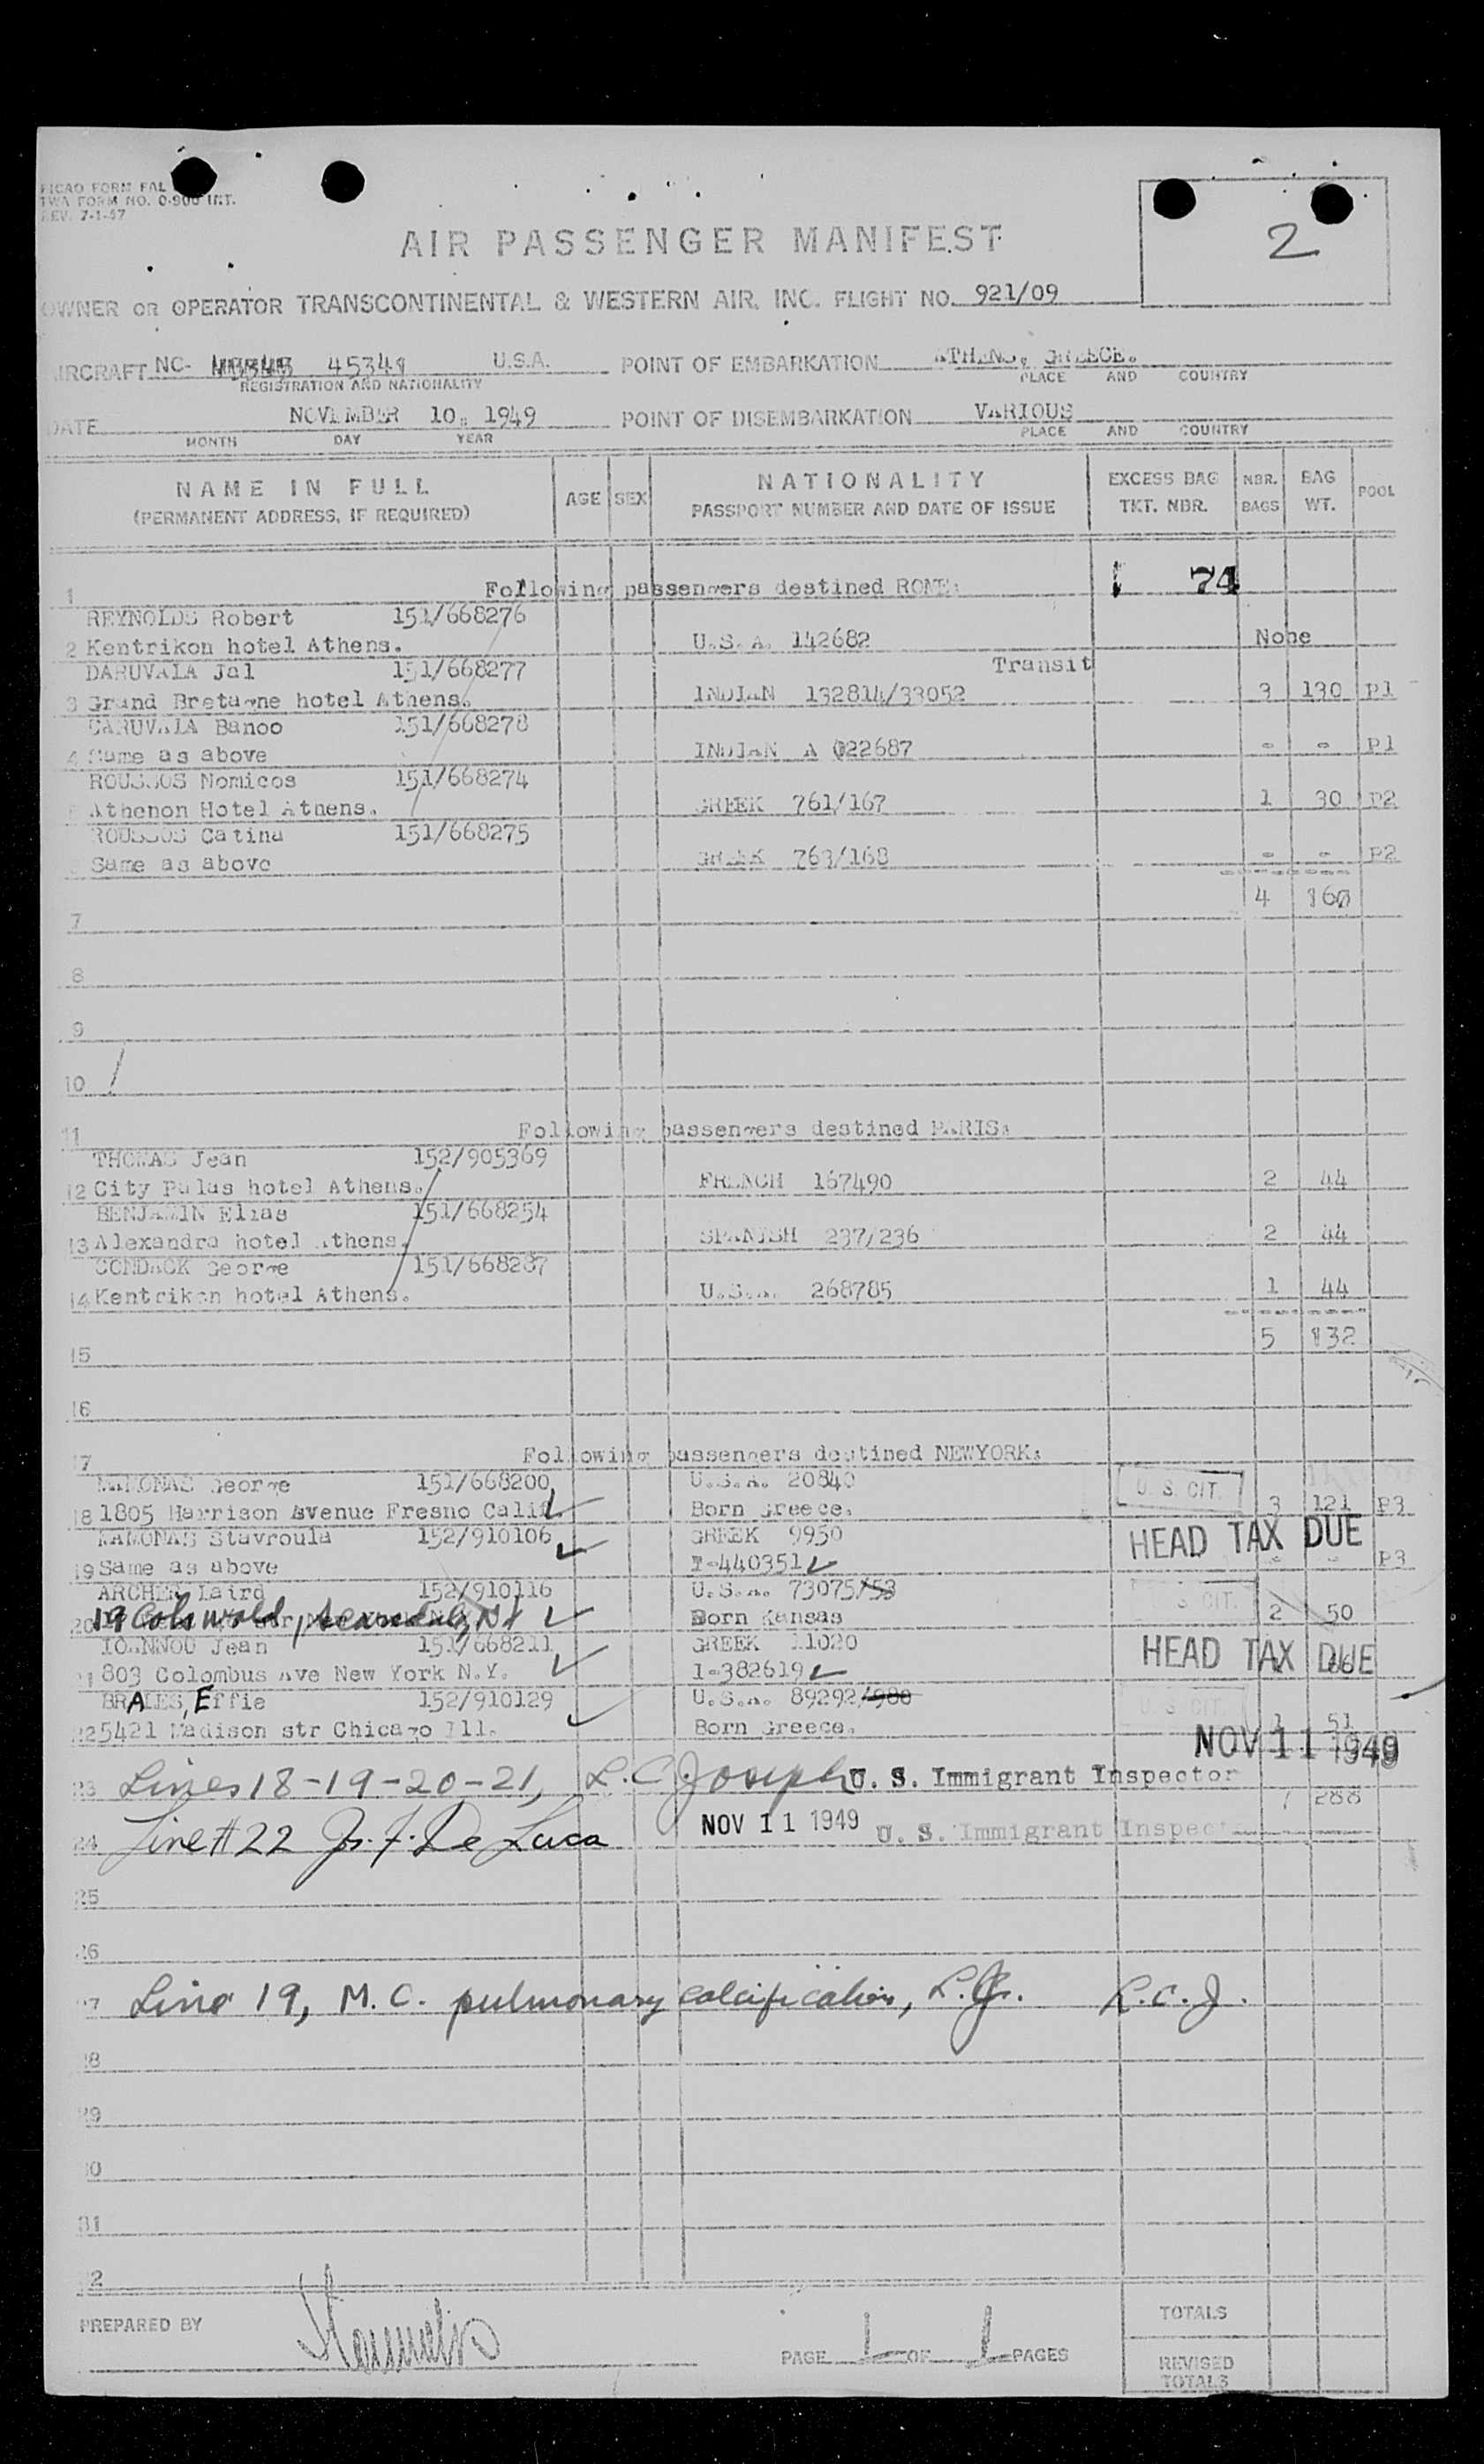 PICAO FORM FAL
TWA FORM NO. 0-900 INT.
REV. 7-1-47
2
AIR PASSENGER MANIFEST
OWNER OR OPERATOR TRANSCONTINENTAL & WESTERN AIR, INC. FLIGHT NO. 921/09
AIRCRAFT NC- 45349 U.S.A. POINT OF EMBARKATION ATHENS, GREECE.
REGISTRATION AND NATIONALITY PLACE AND COUNTRY
DATE NOVEMBER 10. 1949 POINT OF DISEMBARKATION VARIOUS
MONTH DAY YEAR PLACE AND COUNTRY
NAME IN FULL AGE SEX NATIONALITY EXCESS BAG NBR. BAG POOL
(PERMANENT ADDRESS, IF REQUIRED) PASSPORT NUMBER AND DATE OF ISSUE TKT. NBR. BAGS WT.
1 Following passengers destined ROME: 74
REYNOLDS Robert 151/668276
2 Kentrikon hotel Athens. U.S.A. 142682 None
DARUVALA Jal 151/668277 Transit
3 Grand Bretagne hotel Athens. INDIAN 132814/33052 3 130 P1
DARUVALA Banoo 151/668278
4 Same as above INDIAN A 022687 - - P1
ROUSSOS Nomicos 151/668274
5 Athenon Hotel Athens. GREEK 761/167 1 30 P2
ROUSSOS Catina 151/668275
Same as above GREEK 763/168 - - P2
4 160
7
8
9
10
11 Following passengers destined PARIS:
THOMAS Jean 152/905369
12 City Palas hotel Athens. FRENCH 167490 2 44
BENJAMIN Elias 151/668254
13 Alexandra hotel Athens. SPANISH 237/236 2 44
CONDACK George 151/668287
14 Kentrikon hotel Athens. U.S.A. 268785 1 44
5 132
15
16
17 Following passengers destined NEWYORK:
MAMONAS George 151/668200 U.S.A. 20840 U. S. CIT.
18 1805 Harrison Avenue Fresno Calif. Born Greece. 3 121 P3
MAMONAS Stavroula 152/910106 GREEK 9950 HEAD TAX DUE
19 Same as above I-440351 - - P3
ARCHER Laird 152/910116 U.S.A. 73075/53 S. CIT.
20 19 Cotswold, Scarsdale, NY Born Kansas 2 50
IOANNOU Jean 151/668211 GREEK 11020 HEAD TAX DUE
21 803 Colombus Ave New York N.Y. I-382619 66
BRALES, Effie 152/910129 U.S.A. 89292/980 U. S. CIT.
22 5421 Madison str Chicago Ill. Born Greece. 1 51
NOV 11 1949
23 Lines 18-19-20-21, L.C. Joseph U. S. Immigrant Inspector
7 288
24 Line # 22 Js. F. De Luca NOV 11 1949 U. S. Immigrant Inspect
25
26
27 Line 19, M. C. pulmonary calcification, L.C.J.
28
29
30
31
32
PREPARED BY
PAGE 1 OF 1 PAGES
TOTALS
REVISED
TOTALS